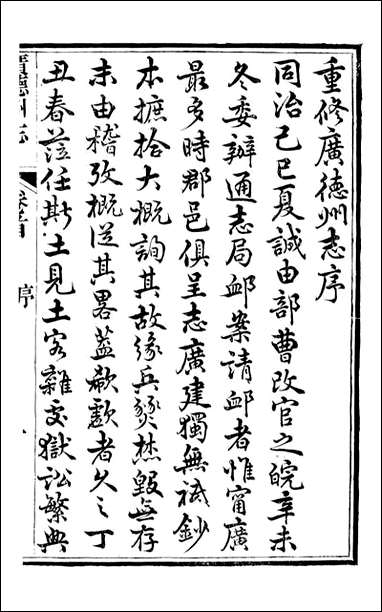 重修廣德州志序
同治己巳夏誠由部曹改官之皖辛未
冬委辦通志局卹案請卹者惟甯廣
最多時郡邑俱呈志廣建獨無祗鈔
本摭拾大概詢其故緣兵燹焚毀無存
末由稽攷概從其畧蓋欷歔者久之丁
丑春蒞任斯土見土客雜處獄訟繁興
廣德州志
卷首
序